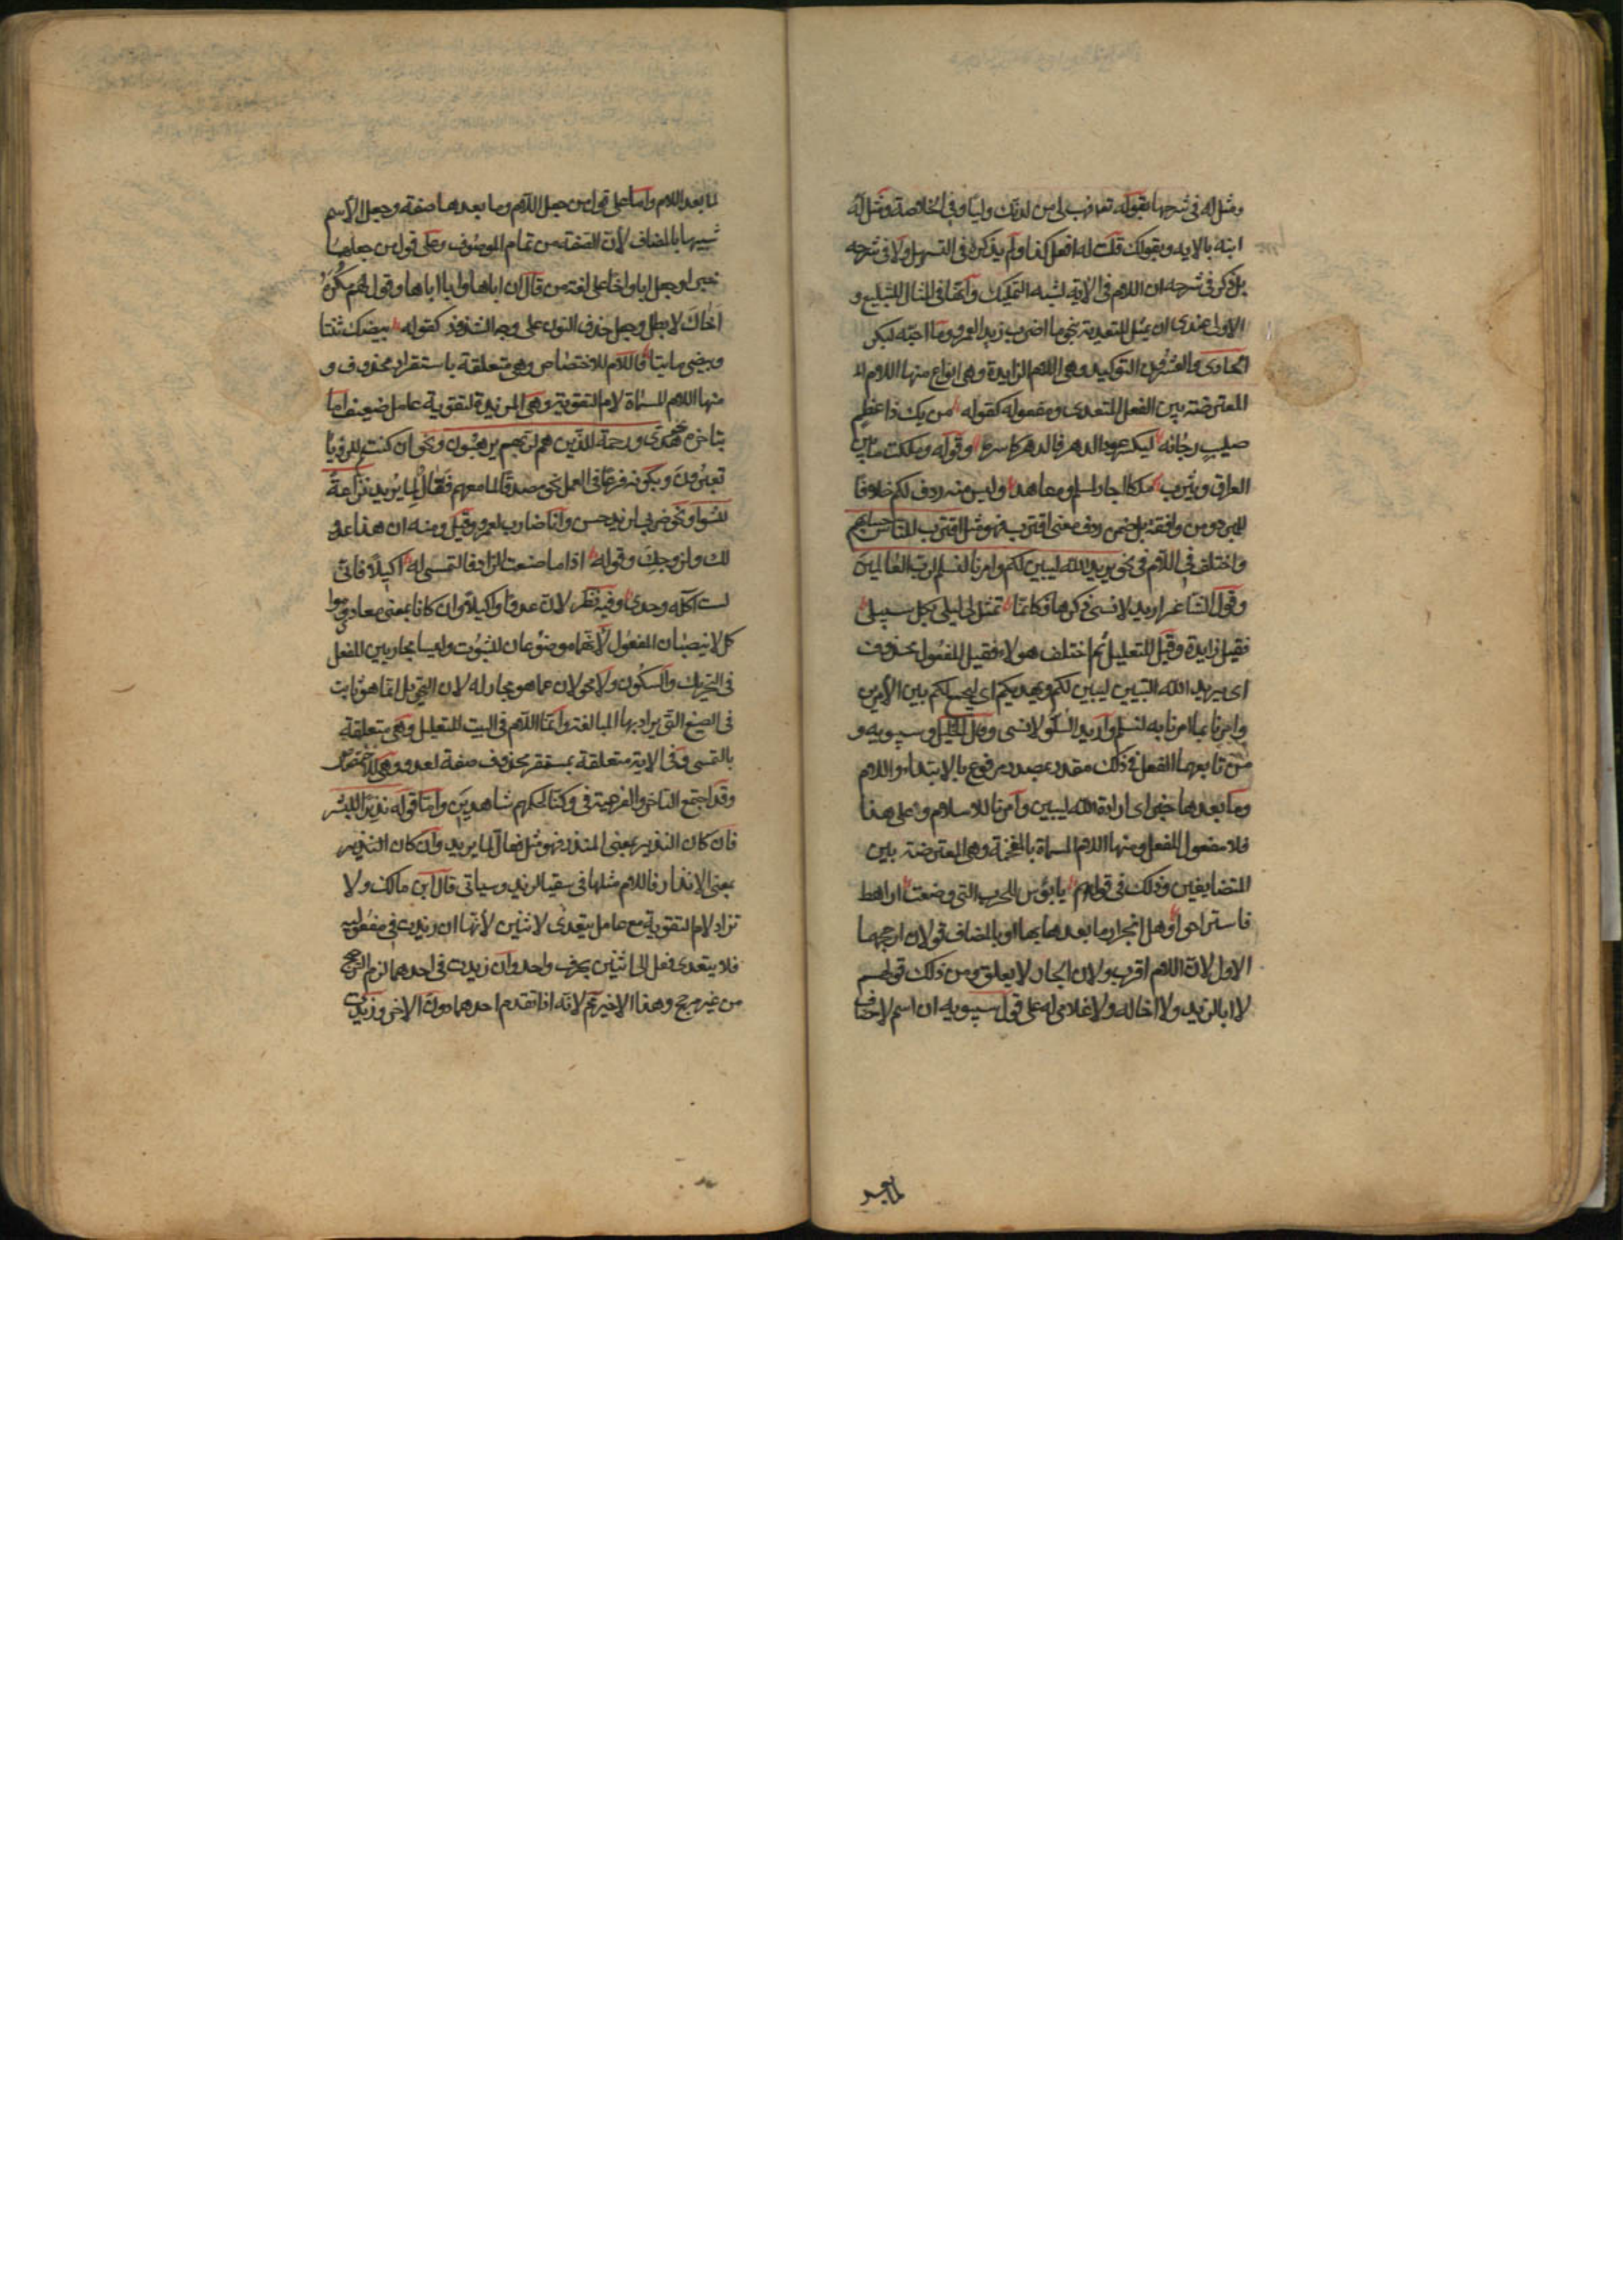 ومثل له فى شرحها بقوله تعالى فهب لى من لدنك وليا وفى الخلاصة ومثل له
ابنه بالاية وبقولك قلت له افعل كذا ولم يذكره فى التسهيل ولا فى شرحه
بل ذكر فى شرحه ان اللام فى الاية لشبه التمليك وانها فى المثال للتبليغ و
الاولى عندى ان يمثل للتعدية بنحو ما اضرب زيدا لعمرو وما احبه لبكر
الحادى والعشرون التوكيد وهى اللام الزايدة وهى انواع منها اللام
المعترضة بين الفعل المتعدى ومفعوله كقوله من يك ذا عظم
صليب رجا به ليكسر عود الدهر فالدهر كاسره وقوله وملكت ما بين
العراق ويثرب ملكا اجار لمسلم ومعاهد وليس منه ردف لكم خلافا
للمبرد ومن وافقه بل ضمن ردف معنى اقترب فهو مثل اقترب للناس حسابهم
واختلف فى اللام فى نحو يريد الله ليبين لكم وامرنا لنسلم لرب العالمين
وقول الشاعر اريد لانسى ذكرها فكانما تمثل لى ليلى بكل سبيل
فقيل زايدة وقيل للتعليل ثم اختلف هولاء فقيل المفعول محذوف
اى يريد الله التبيين ليبين لكم ويهديكم اى ليجمع لكم بين الامرين
وامرنا بما امرنا به لنسلم واريد السلو لانسى وقال الخليل وسيبويه و
من تابعهما الفعل فى ذلك مقدر بمصدر مرفوع بالابتداء واللام
وما بعدها خبر اى ارادة الله ليبين وامرنا للاسلام وعلى هذا
فلا مفعول للفعل ومنها اللام المسماة بالمقحمة وهى المعترضة بين
المتضايفين وذلك فى قولهم يا بؤس للحرب التى وضعت اراهط
فاستراحوا وهل انجرار ما بعدها بها او بالمضاف قولان ارجحهما
الاول لان اللام اقرب ولان الجار لا يعلق ومن ذلك قولهم
لا ابا لزيد ولا اخا له ولا غلامى له على قول سيبويه ان اسم لا مضاف
لما بعد
لما بعد اللام واما على قول من جعل اللام وما بعدها صفة وجعل الاسم
شبيها بالمضاف لان الصفة من تمام الموصوف وعلى قول من جعلهما
خبرا وجعل ابا واخا على لغة من قال ان اباها وابا اباها وقولهم مكره
اخاك لا بطل وجعل حذف النون على وجه الشذوذ كقوله بيضك ثنتا
وبيضى مايتا فاللام للاختصاص وهى متعلقة باستقرار محذوف و
منها اللام المسماة لام التقوية وهى المزيدة لتقوية عامل ضعف اما
بتاخره نحو هدى ورحمة للذين هم لربهم يرهبون ونحو ان كنتم للرؤيا
تعبرون وبكونه فرعا فى العمل نحو مصدقا لما معهم فعال لما يريد نزاعة
للشوى ونحو ضربى لزيد حسن وانا ضارب لعمرو وقيل ومنه ان هذا عدو
لك ولزوجك وقوله اذا ما صنعت الزاد فالتمسى له اكيلا فانى
لست آكله وحدى وفيه نظر لان عدوا واكيلا وان كانا بمعنى معاد ومواكل
لا ينصبان المفعول لانهما موضوعان للثبوت وليسا مجاريين للفعل
فى التحريك والسكون ولا محولان عما هو مجار له لان التحويل انما هو ثابت
فى الصيغ التى يراد بها المبالغة وانما اللام فى البيت للتعليل وهى متعلقة
بالتمسى وفى الاية متعلقة بمستقر محذوف صفة لعدو وهى للاختصاص
وقد اجتمع التاخر والفرعية فى وكنا لحكمهم شاهدين واما قوله نذيرا للبشر
فان كان النذير بمعنى المنذر فهو مثل فعال لما يريد وان كان النذير
بمعنى الانذار فاللام مثلها فى سقيا لزيد وسياتى قال ابن مالك ولا
تزاد لام التقوية مع عامل يتعدى لاثنين لانها ان زيدت فى مفعوليه
فلا يتعدى فعل الى اثنين بحرف واحد وان زيدت فى احدهما لزم الترجيح
من غير مرجح وهذا الاخير ثم لانه اذا تقدم احدهما دون الاخر وزيدت